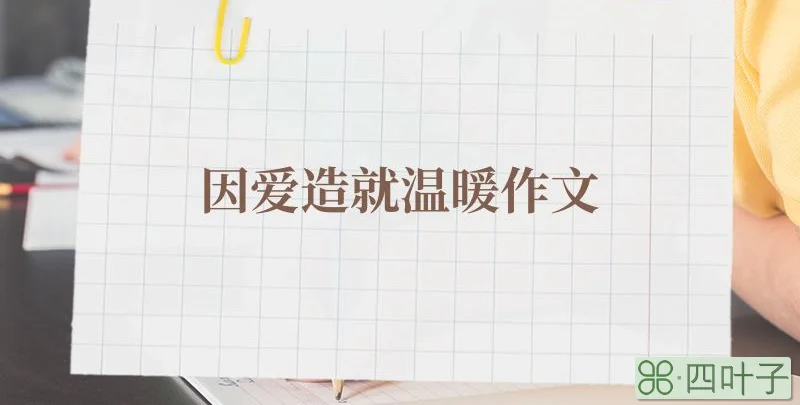 因爱造就温暖作文
四叶子